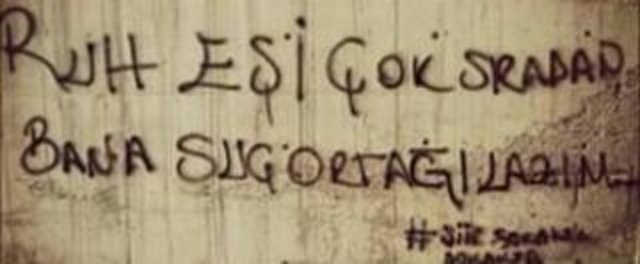 RUH EŞİ ÇOK SRADAN
BANA SUÇ ORTAĞI LAZIM
#ŞİİR SOKAKTA